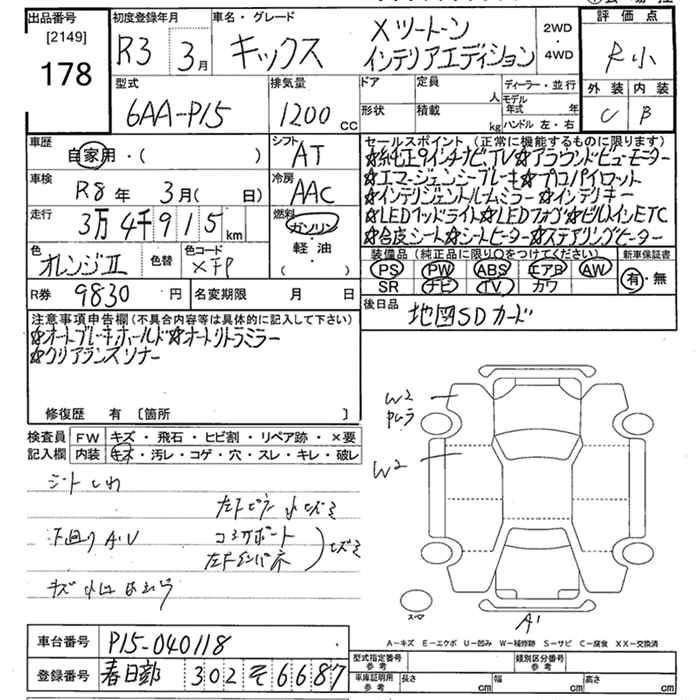 出品番号
[2149]
178
初度登録年月
R3 3月
車名・グレード
キックス
Xツートーン
インテリアエディション
2WD
・
4WD
評価点
R小
外装 内装
C B
型式
6AA-P15
排気量
1200 cc
ドア 定員 人
形状 積載 kg
ディーラー・並行
モデル年式 年
ハンドル 左・右
車歴
自家用・( )
シフト
AT
車検
R8年 3月( 日)
冷房
AAC
走行
3万4千915km
燃料
ガソリン
・
軽油
( )
色
オレンジII
色替
色コード
XFP
R券 9830円
名変期限 月 日
セールスポイント(正常に機能するものに限ります)
☆純正9インチナビ,TV☆アラウンドビューモニター
☆エマージェンシーブレーキ☆プロパイロット
☆インテリジェントルームミラー☆インテリキー
☆LEDヘッドライト☆LEDフォグ☆ビルトインETC
☆合皮シート☆シートヒーター☆ステアリングヒーター
装備品(純正品に限り○をつけてください)
PS PW ABS エアB AW
SR ナビ TV カワ
新車保証書
有・無
後日品
地図SDカード
注意事項申告欄(不具合内容等は具体的に記入して下さい)
☆オートブレーキホールド☆オートリトラミラー
☆クリアランスソナー
修復歴 有 [箇所 ]
検査員記入欄
FW キズ・飛石・ヒビ割・リペア跡・×要
内装 キズ・汚レ・コゲ・穴・スレ・キレ・破レ
シートしわ
左下ピラー小ヒズミ
下回りA,U
コアサポート
左下インパネ
ヒズミ
W2
W2
スマ
A1
A-キズ E-エクボ U-凹み W-補修跡 S-サビ C-腐食 XX-交換済
車台番号 P15-040118
登録番号 春日部 302 そ 6687
型式指定番号
参考
類別区分番号
参考
車庫証明用
参考
長さ cm 幅 cm 高さ cm